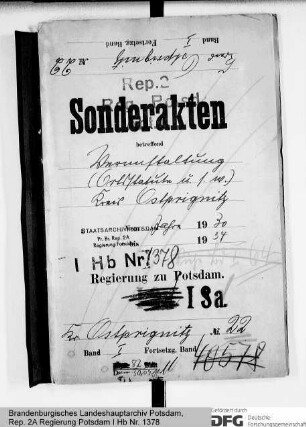 Band I Fortsetzg. Band
Kreis Ostprignitz № 22
Rep. 2
Reg. Potsd.
Sonderakten
betreffend
Verunstaltung
(Ortsstatute u. s. w.)
Kreis Ostprignitz
STAATSARCHIV POTSDAM
Pr. Br. Rep. 2A
Regierung Potsdam
Jahre 1930
bis 1934
I Hb Nr. 1378
Regierung zu Potsdam.
I Sa.
Fr. Ostprignitz № 22
Band I Fortsetzg. Band
10578
Brandenburgisches Landeshauptarchiv Potsdam,
Rep. 2A Regierung Potsdam I Hb Nr. 1378
Gefördert durch
DFG Deutsche
Forschungsgemeinschaft